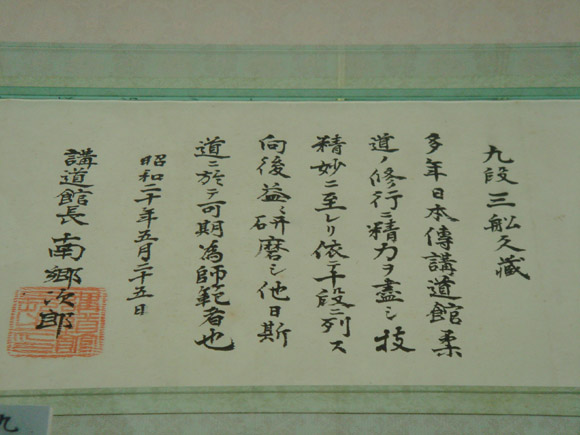 九段 三船久藏
多年日本傳講道館柔
道ノ修行ニ精力ヲ盡シ技
精妙ニ至レリ依テ十段ニ列ス
向後益〻研磨シ他日斯
道ニ於テ可期為師範者也
昭和二十年五月二十五日
講道館長 南鄉次郎
九